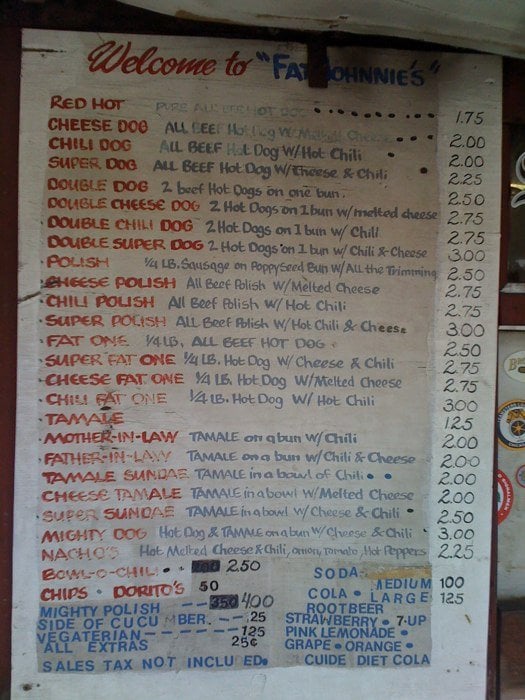 Welcome to "FAT JOHNNIE'S"
RED HOT PURE ALL BEEF HOT DOG 1.75
CHEESE DOG ALL BEEF Hot Dog W/Melted Cheese 2.00
CHILI DOG ALL BEEF Hot Dog W/Hot Chili 2.00
SUPER DOG ALL BEEF Hot Dog W/Cheese & Chili 2.25
DOUBLE DOG 2 beef Hot Dogs on one bun. 2.50
DOUBLE CHEESE DOG 2 Hot Dogs on 1 bun w/ melted cheese 2.75
DOUBLE CHILI DOG 2 Hot Dogs on 1 bun w/ Chili 2.75
DOUBLE SUPER DOG 2 Hot Dogs on 1 bun w/ Chili & Cheese 3.00
POLISH 1/4 LB. Sausage on PoppySeed Bun W/ All the Trimming 2.50
CHEESE POLISH All Beef Polish W/Melted Cheese 2.75
CHILI POLISH All Beef Polish W/Hot Chili 2.75
SUPER POLISH ALL Beef Polish W/Hot Chili & Cheese 3.00
FAT ONE 1/4 LB. ALL BEEF HOT DOG 2.50
SUPER FAT ONE 1/4 LB. Hot Dog W/Cheese & Chili 2.75
CHEESE FAT ONE 1/4 LB. Hot Dog W/Melted Cheese 2.75
CHILI FAT ONE 1/4 LB. Hot Dog W/ Hot Chili 300
TAMALE 125
MOTHER-IN-LAW TAMALE on a bun W/ Chili 2.00
FATHER-IN-LAW TAMALE on a bun W/ Chili & Cheese 2.00
TAMALE SUNDAE TAMALE in a bowl of Chili 2.00
CHEESE TAMALE TAMALE in a bowl W/Melted Cheese 2.00
SUPER SUNDAE TAMALE in a bowl W/Cheese & Chili 2.50
MIGHTY DOG Hot Dog & TAMALE on a bun W/ Cheese & Chili 3.00
NACHO'S Hot Melted Cheese & Chili, onion, Tomato, Hot Peppers 2.25
BOWL-O-CHILI 200 2.50
CHIPS • DORITO'S 50
MIGHTY POLISH --- 350 400
SIDE OF CUCUMBER --- .25
VEGATERIAN ---- 125
ALL EXTRAS 25¢
SALES TAX NOT INCLUED.
SODA
MEDIUM 100
COLA • LARGE 125
ROOTBEER
STRAWBERRY • 7-UP
PINK LEMONADE •
GRAPE • ORANGE •
CUIDE DIET COLA